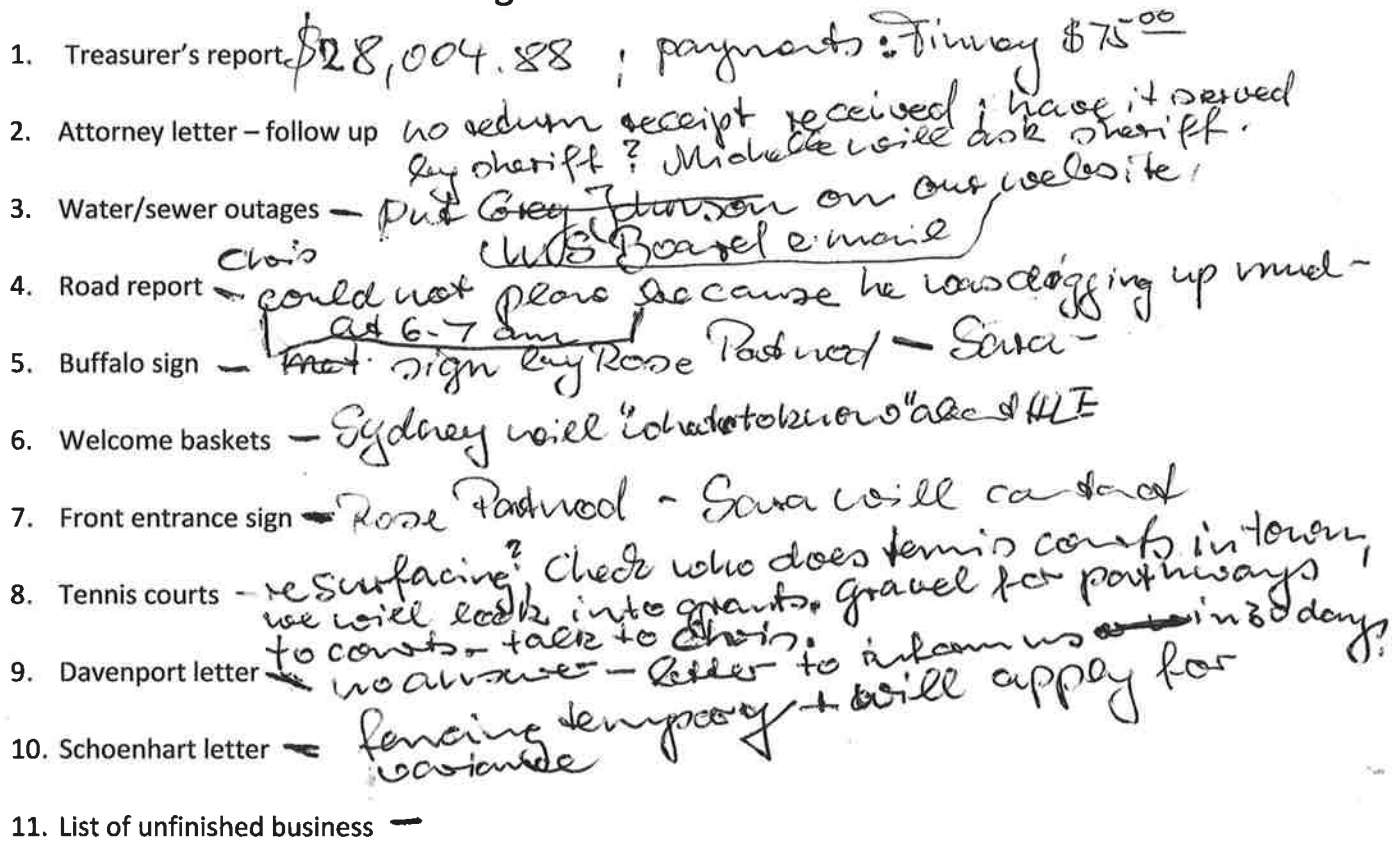 1. Treasurer's report $28,004.88 ; payments: Tinney $75.00
2. Attorney letter – follow up no return receipt received ; have it served
by sheriff? Michelle will ask sheriff.
3. Water/sewer outages – put Greg Johnson on our website,
Board e-mail
Chris
4. Road report – could not plow because he was digging up mud –
at 6-7 am
5. Buffalo sign – sign by Rose – Sara –
6. Welcome baskets – Sydney will "what to know"
7. Front entrance sign – Rose – Sara will contact
8. Tennis courts – resurfacing? Check who does tennis courts in town,
we will look into grants. gravel for pathways
to courts – talk to Chris.
9. Davenport letter – no answer – letter to inform us in 30 days.
10. Schoenhart letter – fencing temporary + will apply for
variance
11. List of unfinished business –